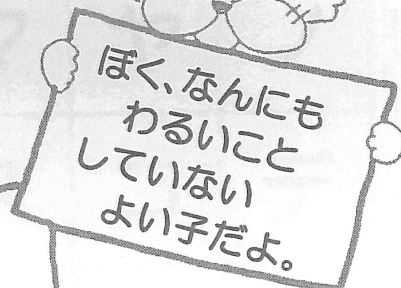 ぼく、なんにも
わるいこと
していない
よい子だよ。